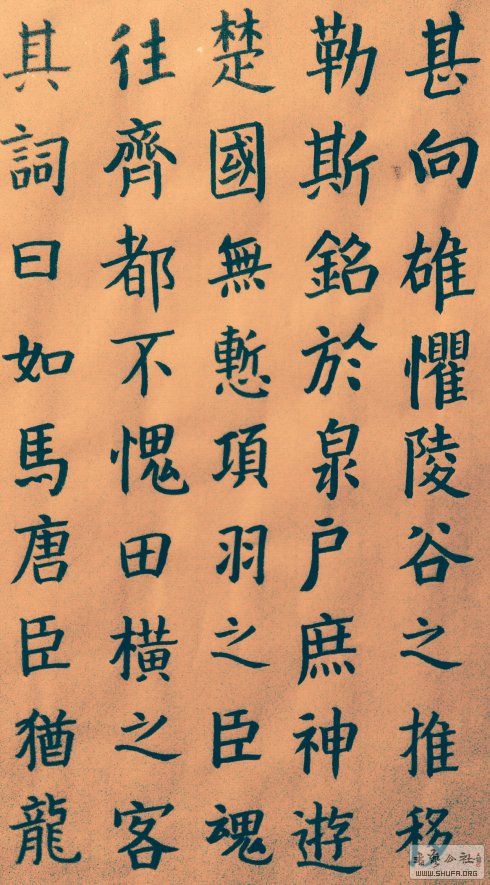 甚向雄懼陵谷之推移
勒斯銘於泉户庶神遊
楚國無慙項羽之臣魂
往齊都不愧田橫之客
其詞曰如馬唐臣猶龍
WWW.SHUFA.ORG